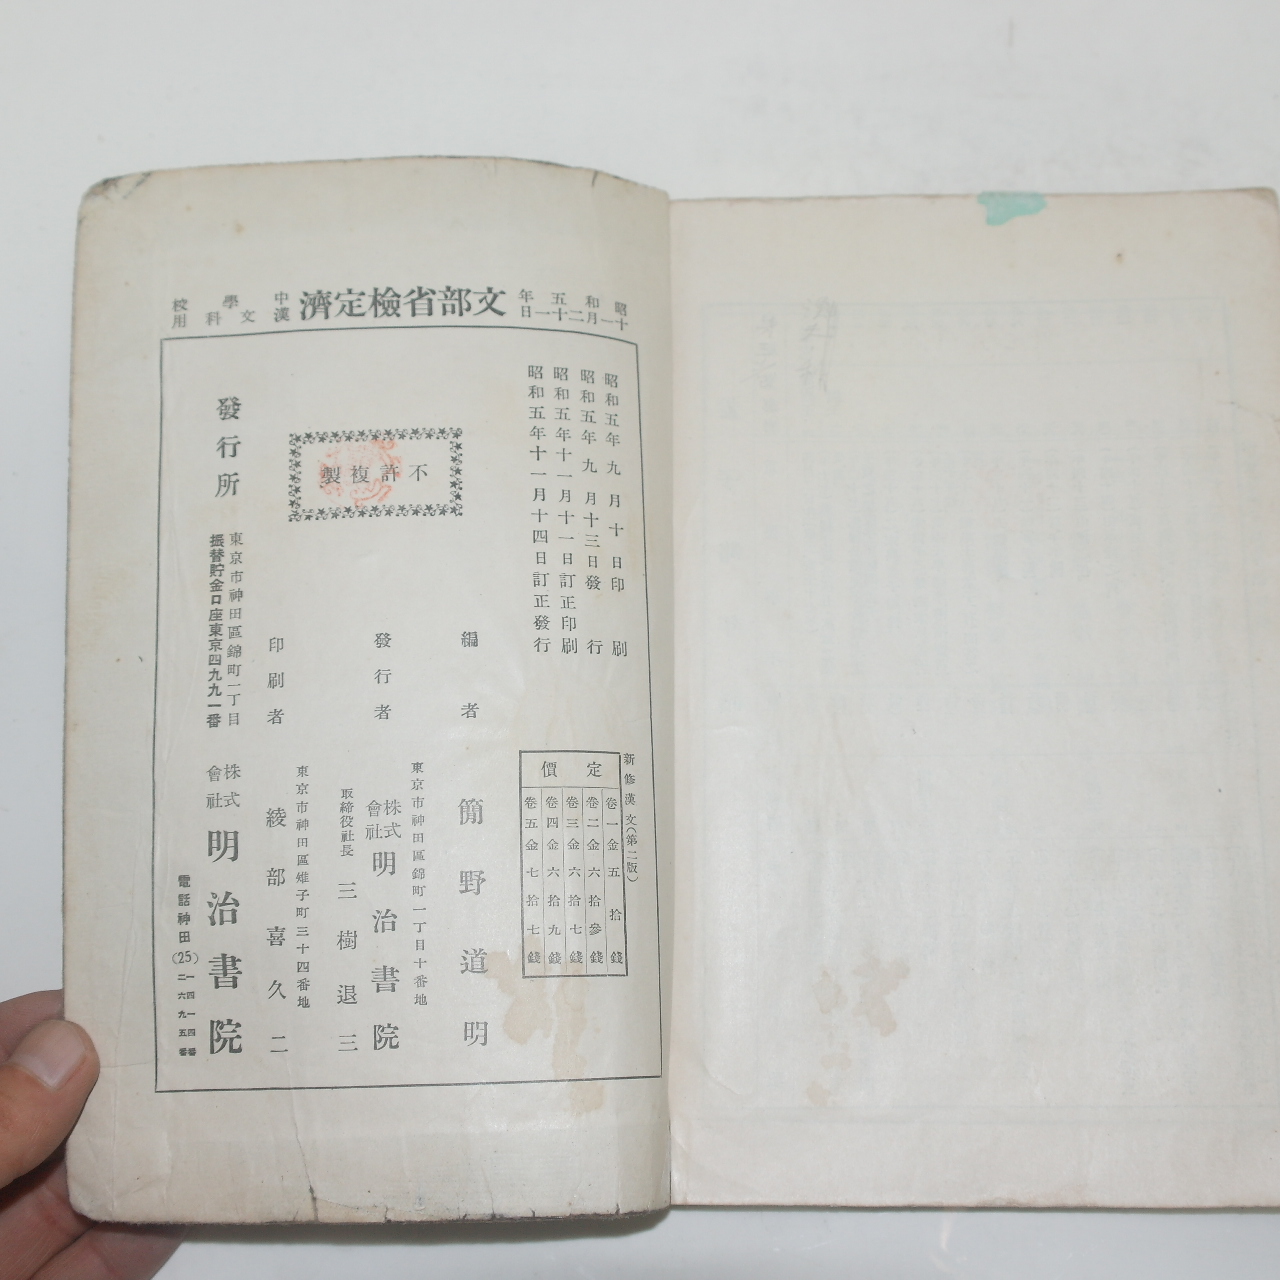 昭和五年
十一月二十一日
文部省檢定濟
中學校
漢文科用
昭和五年九月十日印刷
昭和五年九月十三日發行
昭和五年十一月十一日訂正印刷
昭和五年十一月十四日訂正發行
新修漢文(第二版)
定價
卷一金五拾錢
卷二金六拾參錢
卷三金六拾七錢
卷四金六拾九錢
卷五金七拾七錢
不許複製
編者 簡野道明
東京市神田區錦町一丁目十番地
發行者 株式會社 明治書院
取締役社長 三樹退三
東京市神田區雉子町三十四番地
印刷者 綾部喜久二
發行所
東京市神田區錦町一丁目
振替貯金口座東京四九九一番
株式會社 明治書院
電話神田(25)
一四一四番
二六九五番